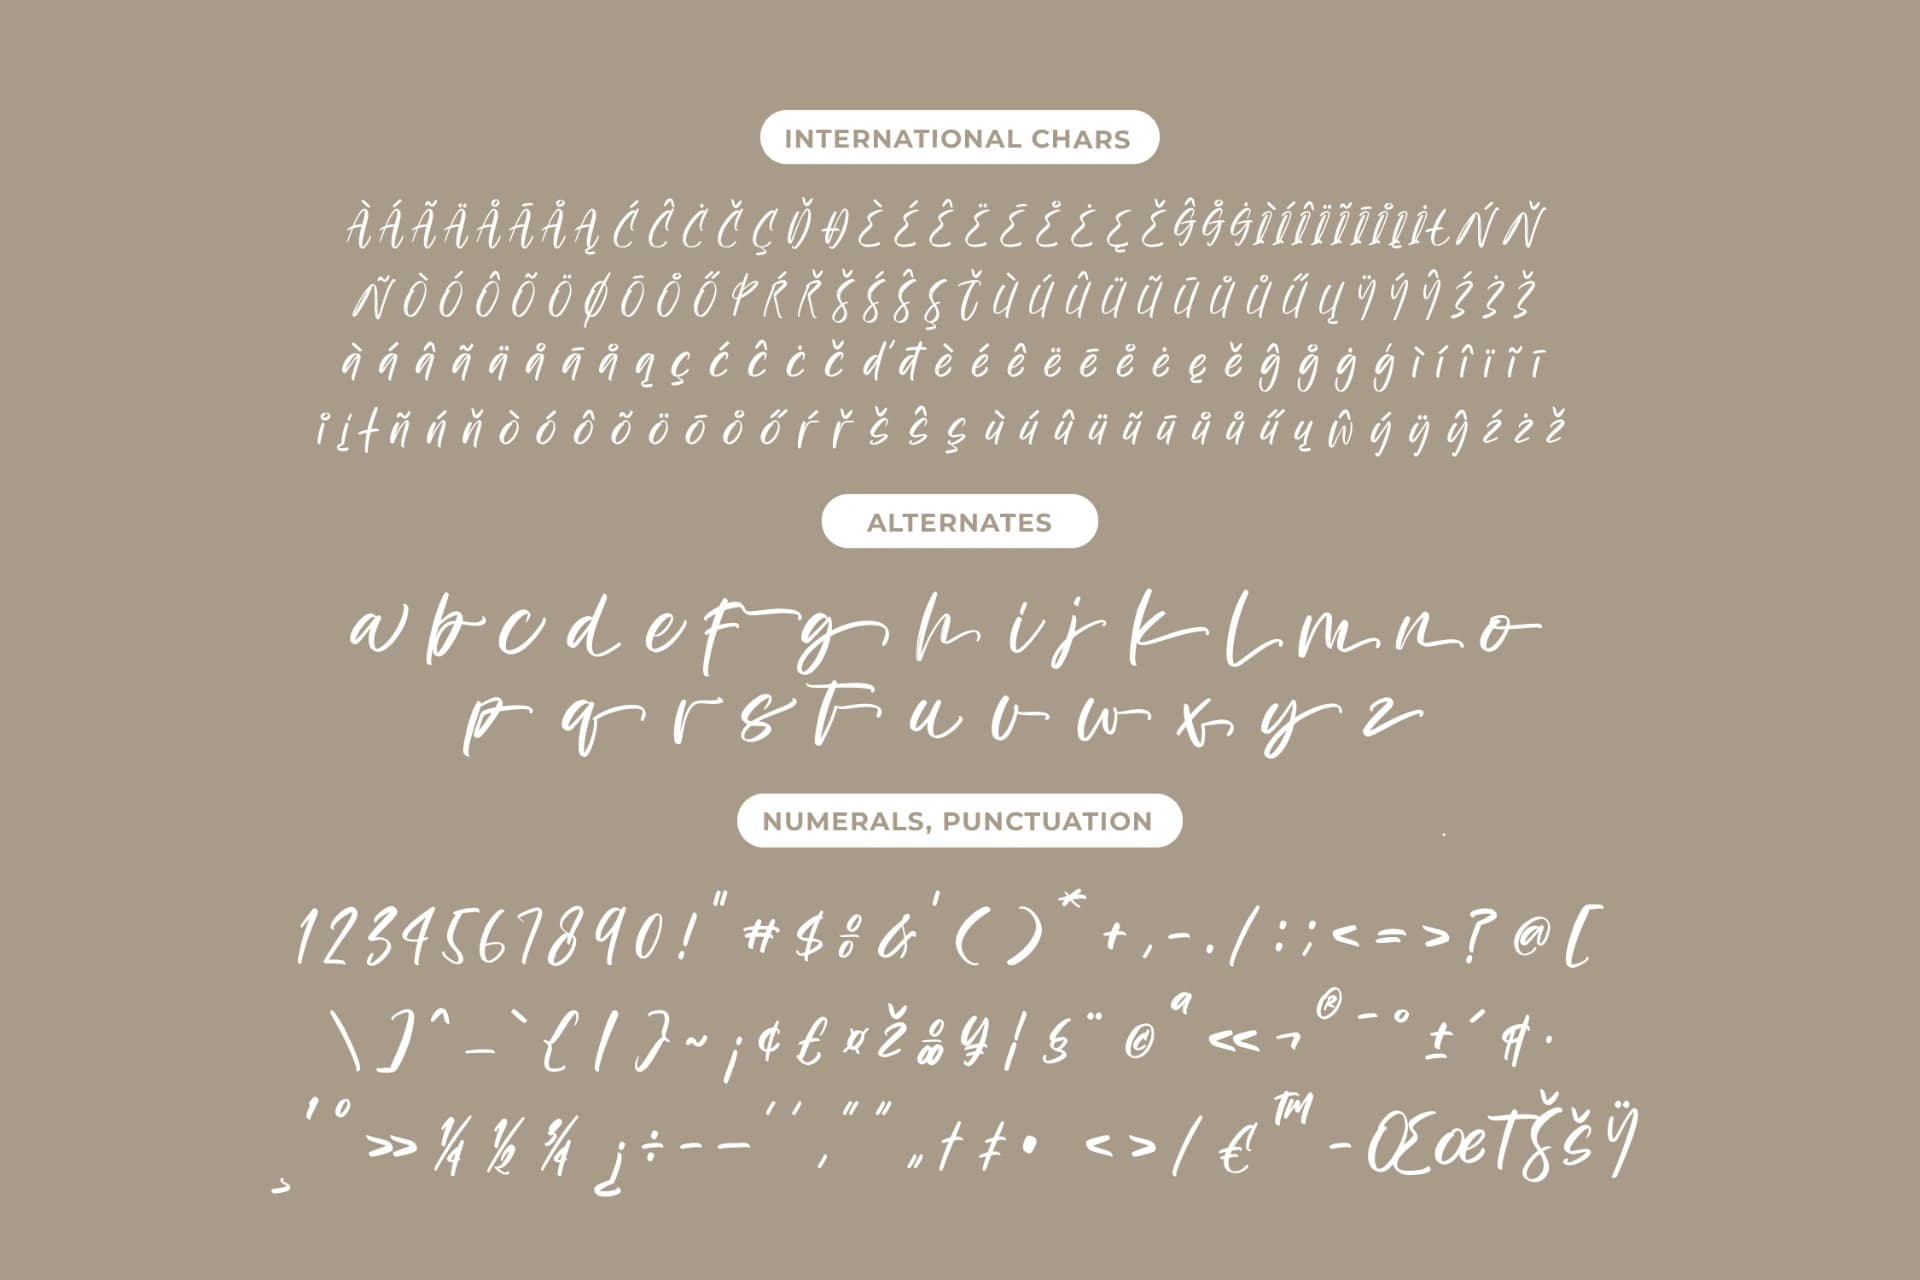 INTERNATIONAL CHARS
ÀÁÃÄÅĀÅĄĆĈĊČÇĎĐÈÉÊËĒE̊ĖĘĚĜG̊ĠÌÍÎÏĨĪI̊ĮİŁŃŇ
ÑÒÓÔÕÖØŌO̊ŐÞŔŘŠŚŜŞŤÙÚÛÜŨŪŮŮŰŲŸÝŶŹŻŽ
àáâãäåāåąçćĉċčďđèéêëēe̊ėęěĝg̊ġǵìíîïĩī
i̊įłñńňòóôõöōo̊őŕřšŝşùúûüũūůůűųŵýÿŷźżž
ALTERNATES
abcdefghijklmno
pqrstuvwxyz
NUMERALS, PUNCTUATION
1234567890!"#$%&'()*+,-./:;<=>?@[
\]^_`{|}~¡¢£¤Ž‰¥¦§¨©ª«¬®¯°±´¶·
¸¹º»¼½¾¿÷–—‘’‚“”„†‡•‹›⁄€™−ŒœTŠšŸ